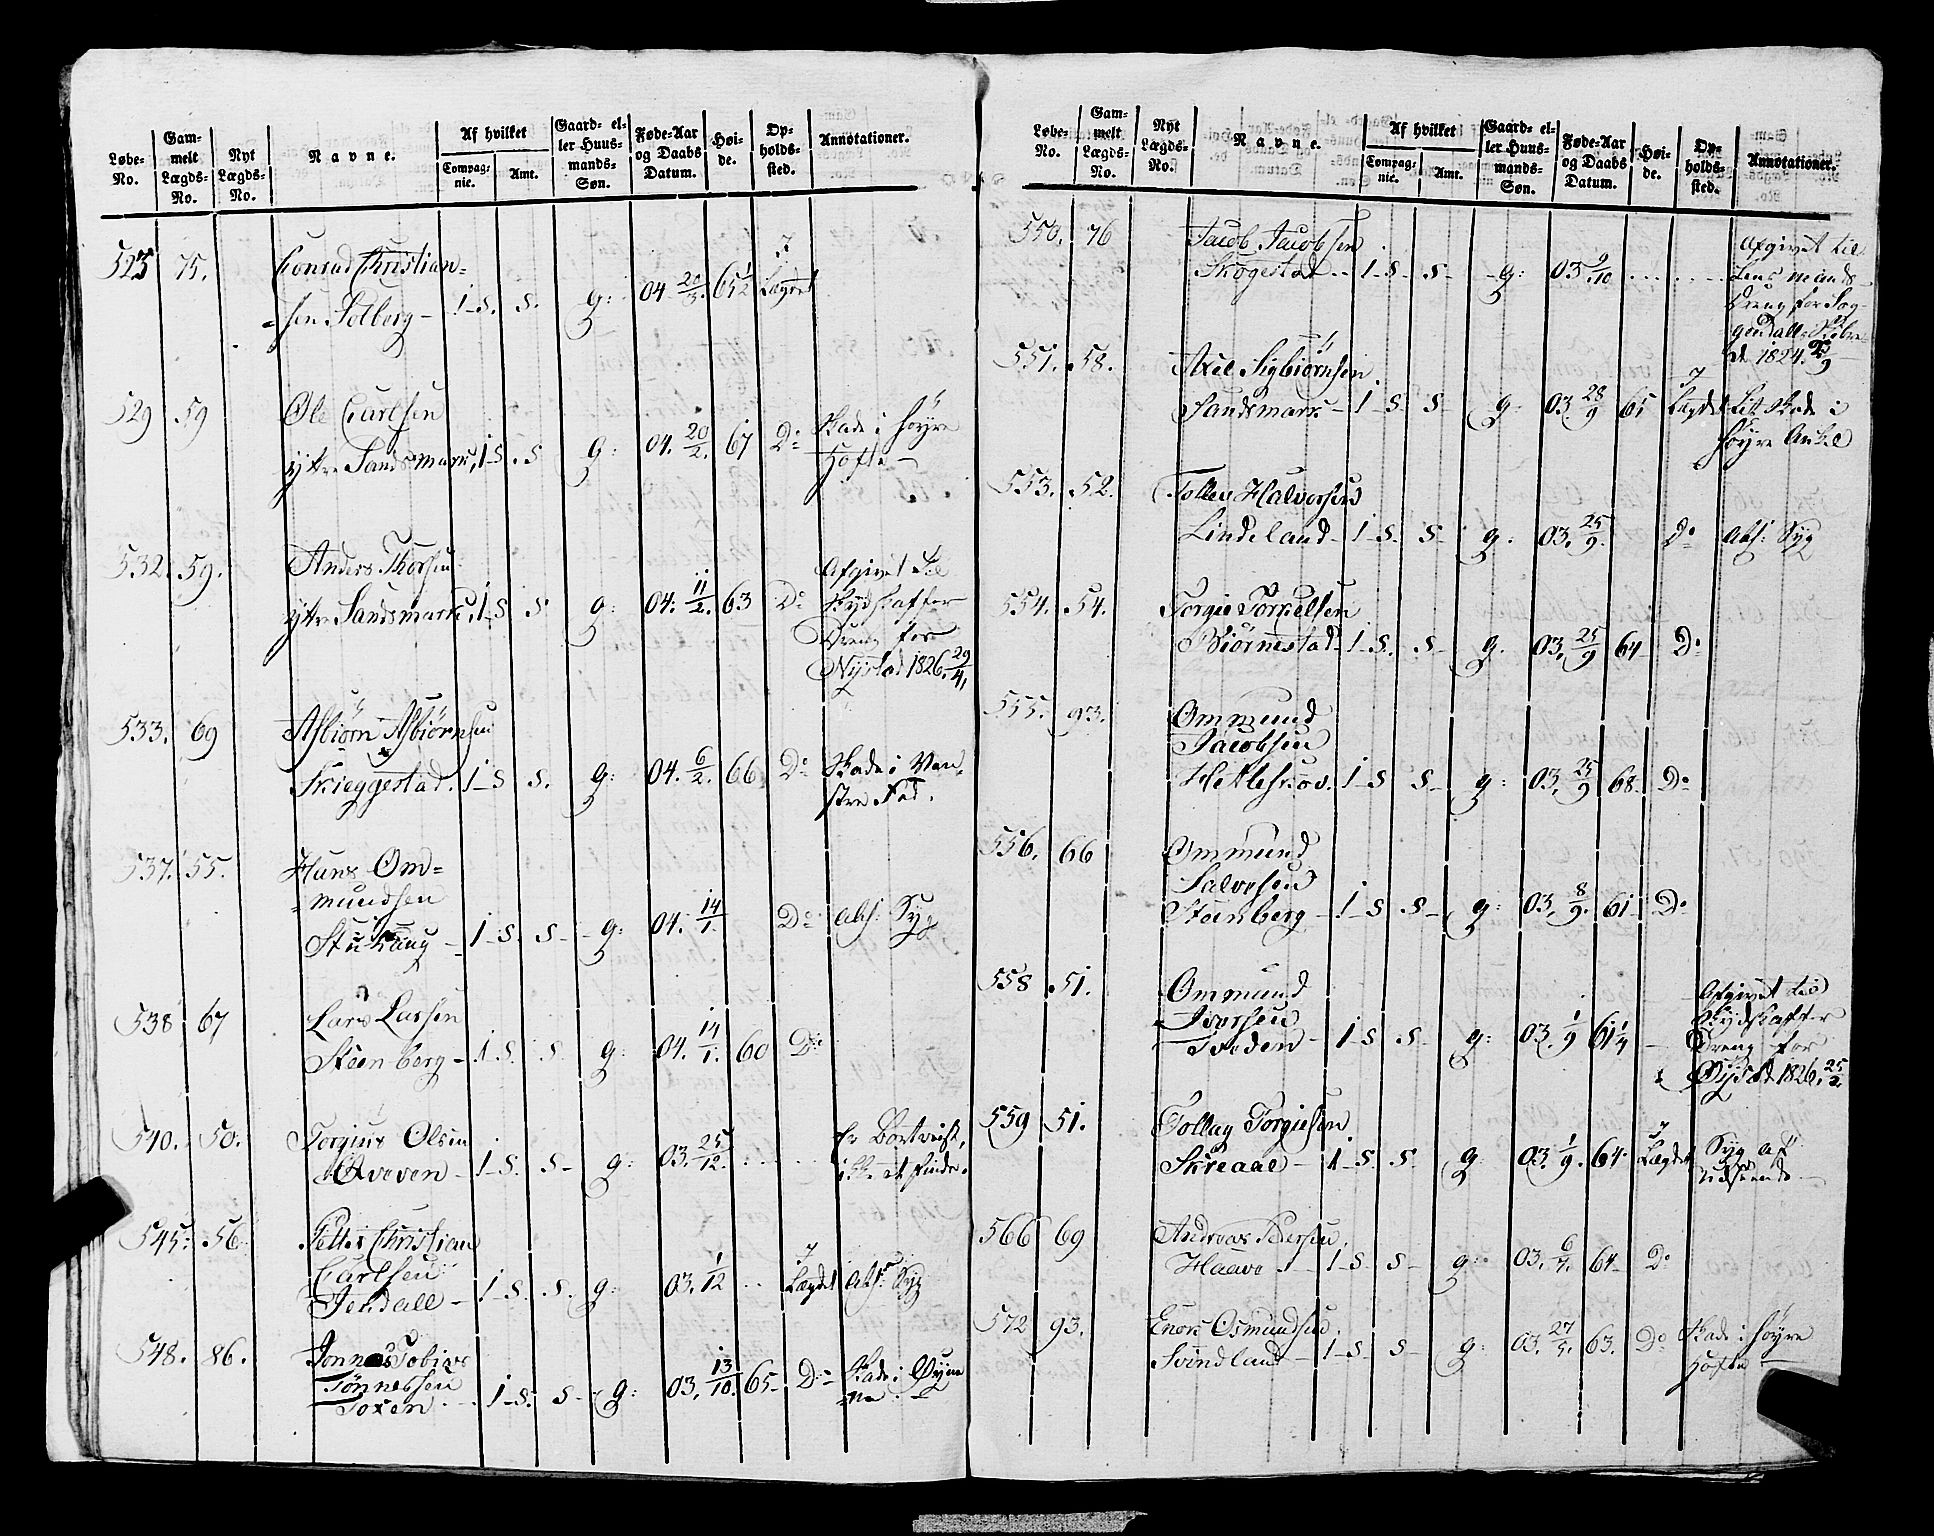 Løbe-No. Gammelt Lægds-No. Nyt Lægds-No. Navne. Af hvilket Compagnie. Amt. Gaard- eller Huusmands-Søn. Føde-Aar og Daabs Datum. Høide. Opholdssted. Annotationer.
523 75. Conrad Christian=
=sen Solberg – 1 – S. S. g: 04 20/3. 65 1/2 I Lægdet
529 59 Ole Carlsen
ytre Sandsmark, 1 S. S g: 04. 20/2. 67 Do Skade i høyre
Hofte –
532. 59. Anders Thorsen
ytre Sandsmark, 1 – S S. g: 04. 11/2. 63 Do Afgivet til
Skydskaffer
Dreng for
Nystad 1826. 29/4.
533. 69 Asbiørn Asbiørnsen
Skieggestad. 1 – S S. g: 04. 6/2. 66 Do Skade i Ven=
stre Fod.
537. 55. Hans Om=
=mundsen
– 1 – S. S – g: 04. 14/1. Do Abs: Syg
538 67 Lars Larsen
Steenberg – 1 – S. S. g: 04. 14/1. 60 Do
540. 50. Torgius Olsen
– 1 – S. S – g: 03. 25/12. Er Bortreist,
ikke at finde.
545. 56 Petter Christian
Carlsen
Jerdall – 1 – S. S. g: 03. 1/12 I Lægdet Abs: Syg
548. 86. Jonnas Tobias
Tønnessen
Foxen 1 – S. S – g: 03. 13/10. 65 – Do Skade i Øyne
=ne –
Løbe-No. Gammelt Lægds-No. Nyt Lægds-No. Navne. Af hvilket Compagnie. Amt. Gaard- eller Huusmands-Søn. Føde-Aar og Daabs Datum. Høide. Opholdssted. Annotationer.
550. 76 Jacob Jacobsen
Skogestad – 1 – S – S – g: 03 9/10 Afgivet til
Lensmands
Dreng for Sog=
gendall
1824.
551. 58. Axel Sigbiørnsen
Sandsmark – 1 – S. S – g: 03 28/9 65 I Lægdet Lit Skade i
høyre Ankel
553. 52. Tollev Halvorsen
Lindeland – 1 – S. S – g: 03. 25/9. Do Abs: Syg
554. 54. Torgie Torkelsen
Biørnestad – 1 – S. S – g. 03. 25/9 64 – Do
555. 93. Ommund
Jacobsen
Hetleskov. 1 – S S – g: 03. 25/9 68 – Do
556. 66 Ommund
Salvesen
Steenberg – 1 – S S – g: 03. 8/9. 61 – Do
558 51. Ommund
Iversen
Tveden – 1 – S S – g: 03. 1/9 61 1/4 Afgivet til
Skydskaffer
Dreng for
1826. 25/2.
559 51. Tollag Torgiesen
Skreaae – 1 – S. S – g: 03. 1/9. 64 – I Lægdet Syg af
Udseende –
566 69 Andreas Pedersen
Haave 1 – S S – g: 03. 6/7. 64 – Do
572 93. Enork Osmundsen
Svindland – 1 – S. S – g: 03. 27/5. 63. Do Skade i høyre
Hofte –